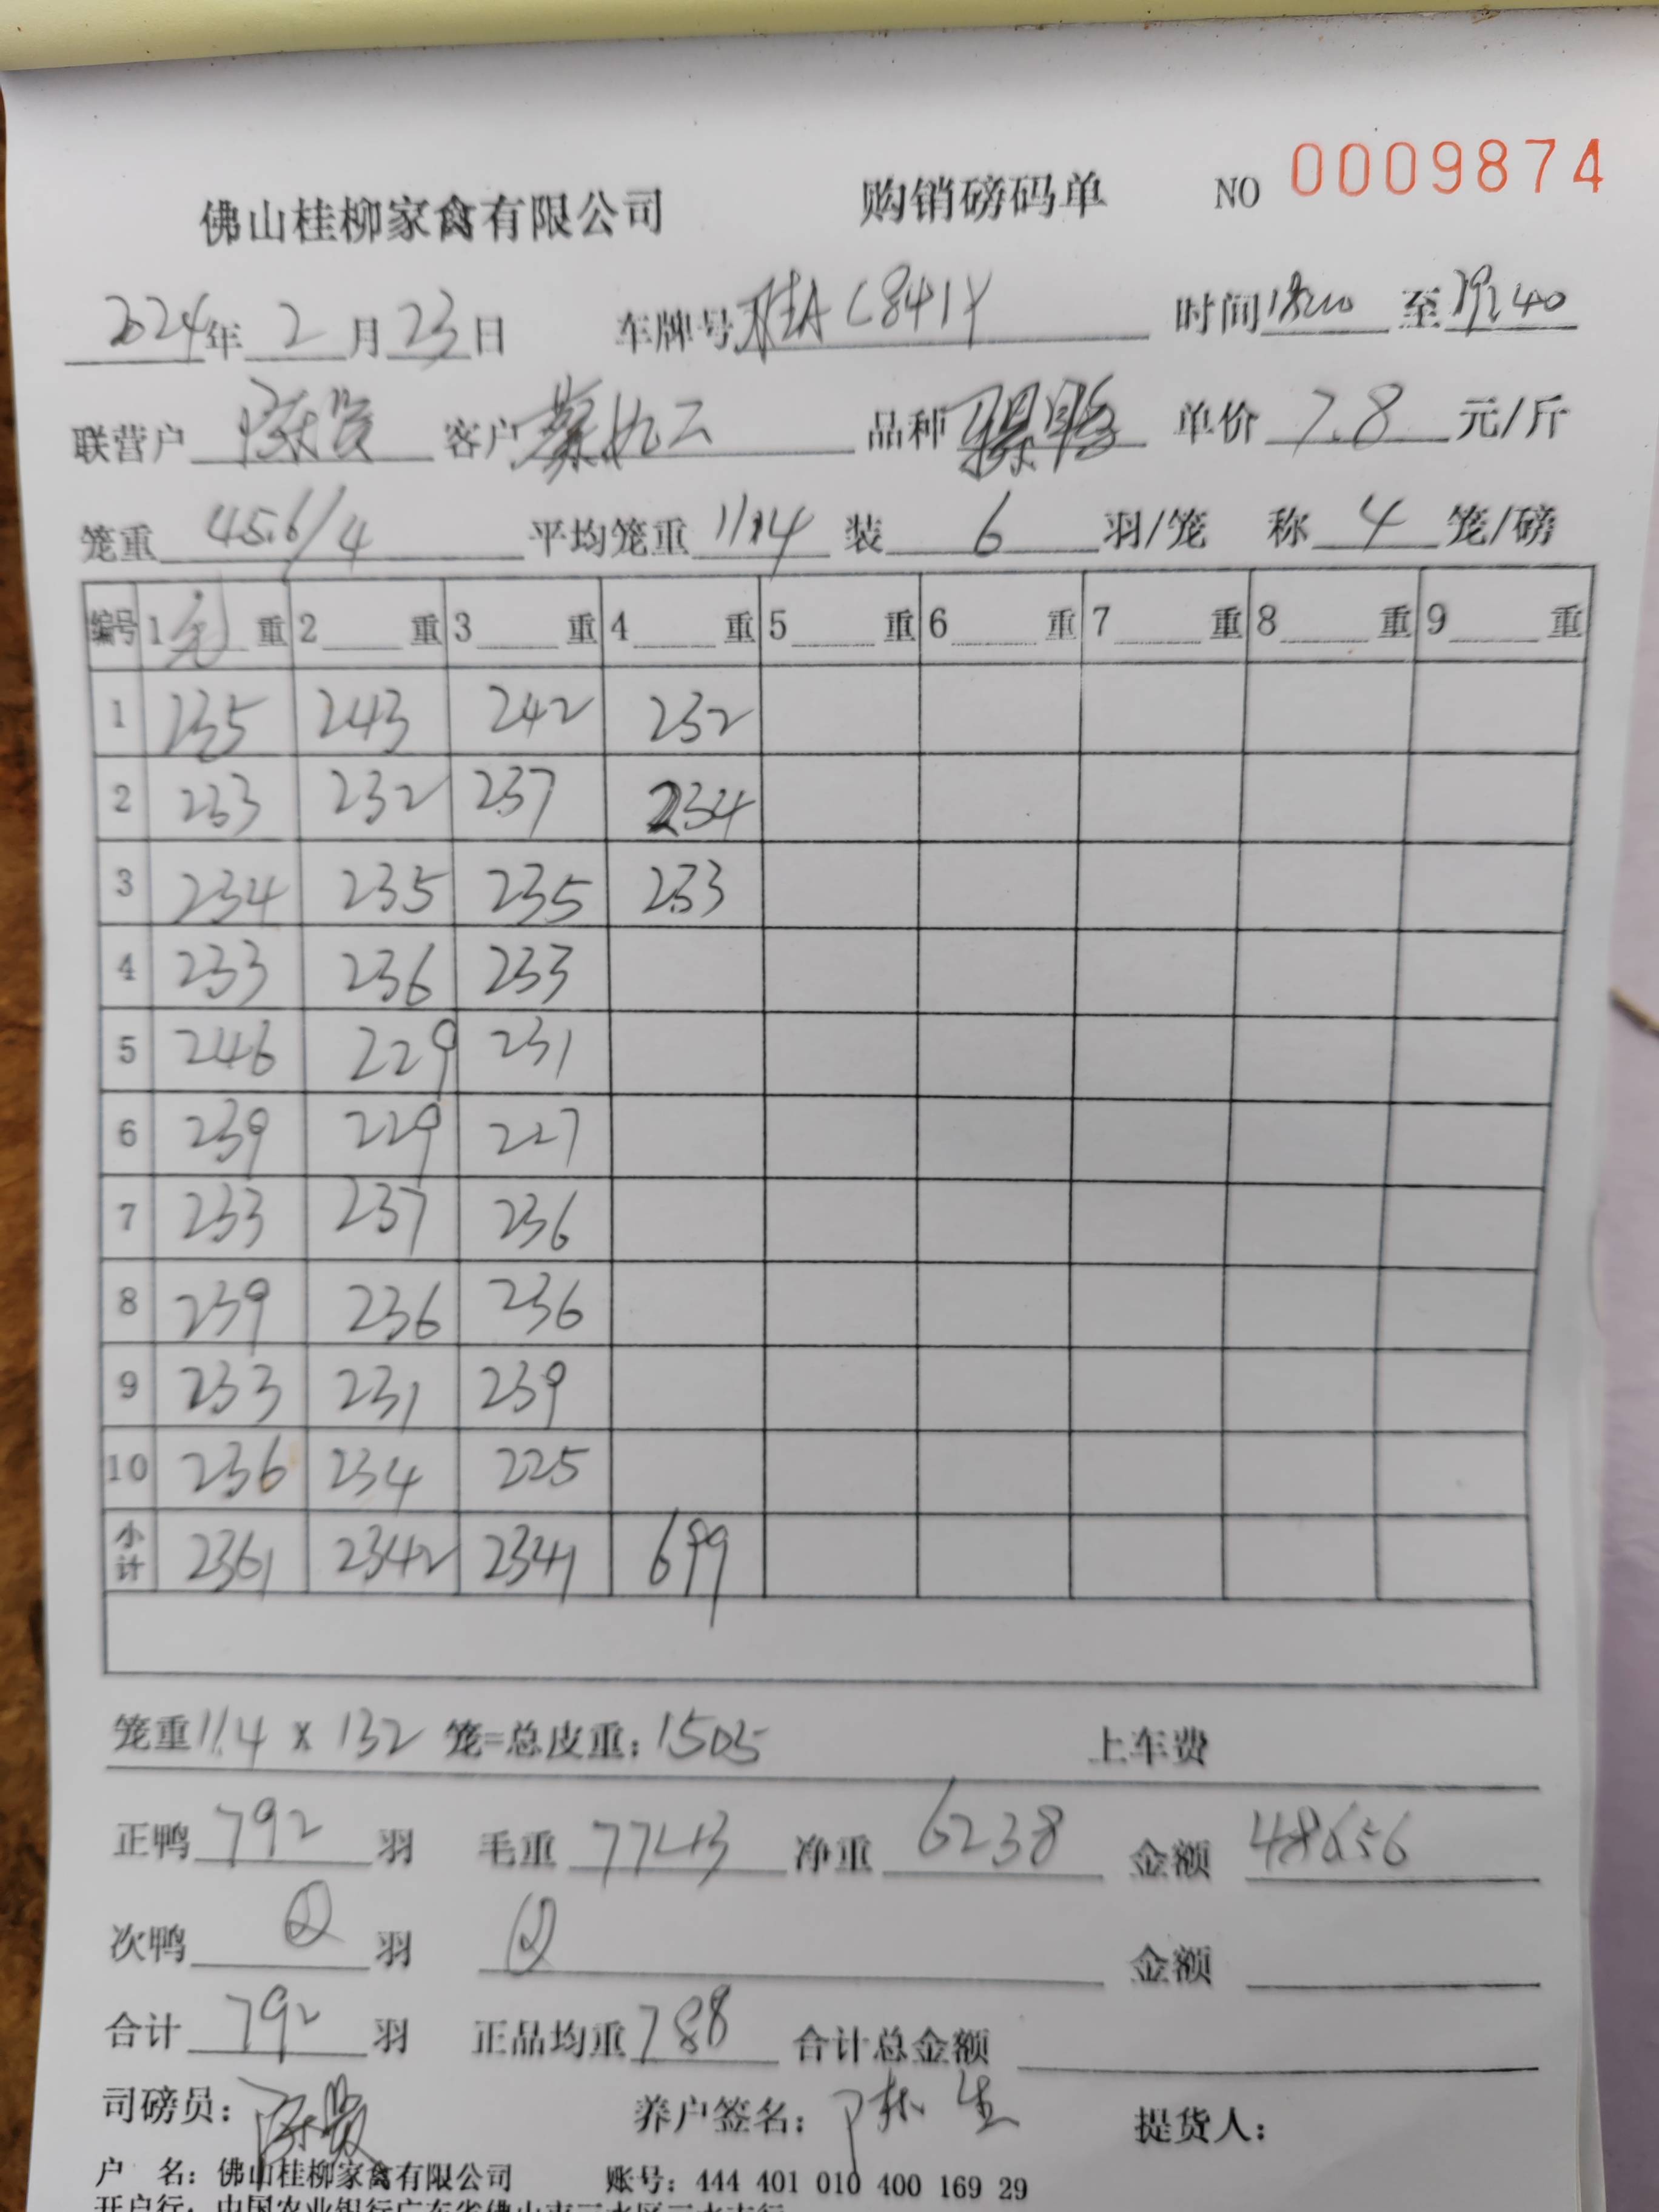 佛山桂柳家禽有限公司 购销磅码单 NO 0009874
2024年 2 月 23 日 车牌号 桂A C841Y 时间 18:00 至 19:40
联营户 陈贤 客户 九二 品种 单价 7.8 元/斤
笼重 45.6/4 平均笼重 11.4 装 6 羽/笼 称 4 笼/磅
编号 1 毛 重 2 重 3 重 4 重 5 重 6 重 7 重 8 重 9 重
1 235 243 242 232
2 233 232 237 234
3 234 235 235 233
4 233 236 233
5 246 229 231
6 239 229 227
7 233 237 236
8 239 236 236
9 233 231 239
10 236 234 225
小计 2361 2342 2341 699
笼重 11.4 x 132 笼=总皮重: 1505 上车费
正鸭 792 羽 毛重 7743 净重 6238 金额 48656
次鸭 羽 金额
合计 792 羽 正品均重 7.88 合计总金额
司磅员: 陈贤 养户签名: 生 提货人:
户 名: 佛山桂柳家禽有限公司 账号: 444 401 010 400 169 29
开户行: 中国农业银行广东省佛山市三水区三水支行